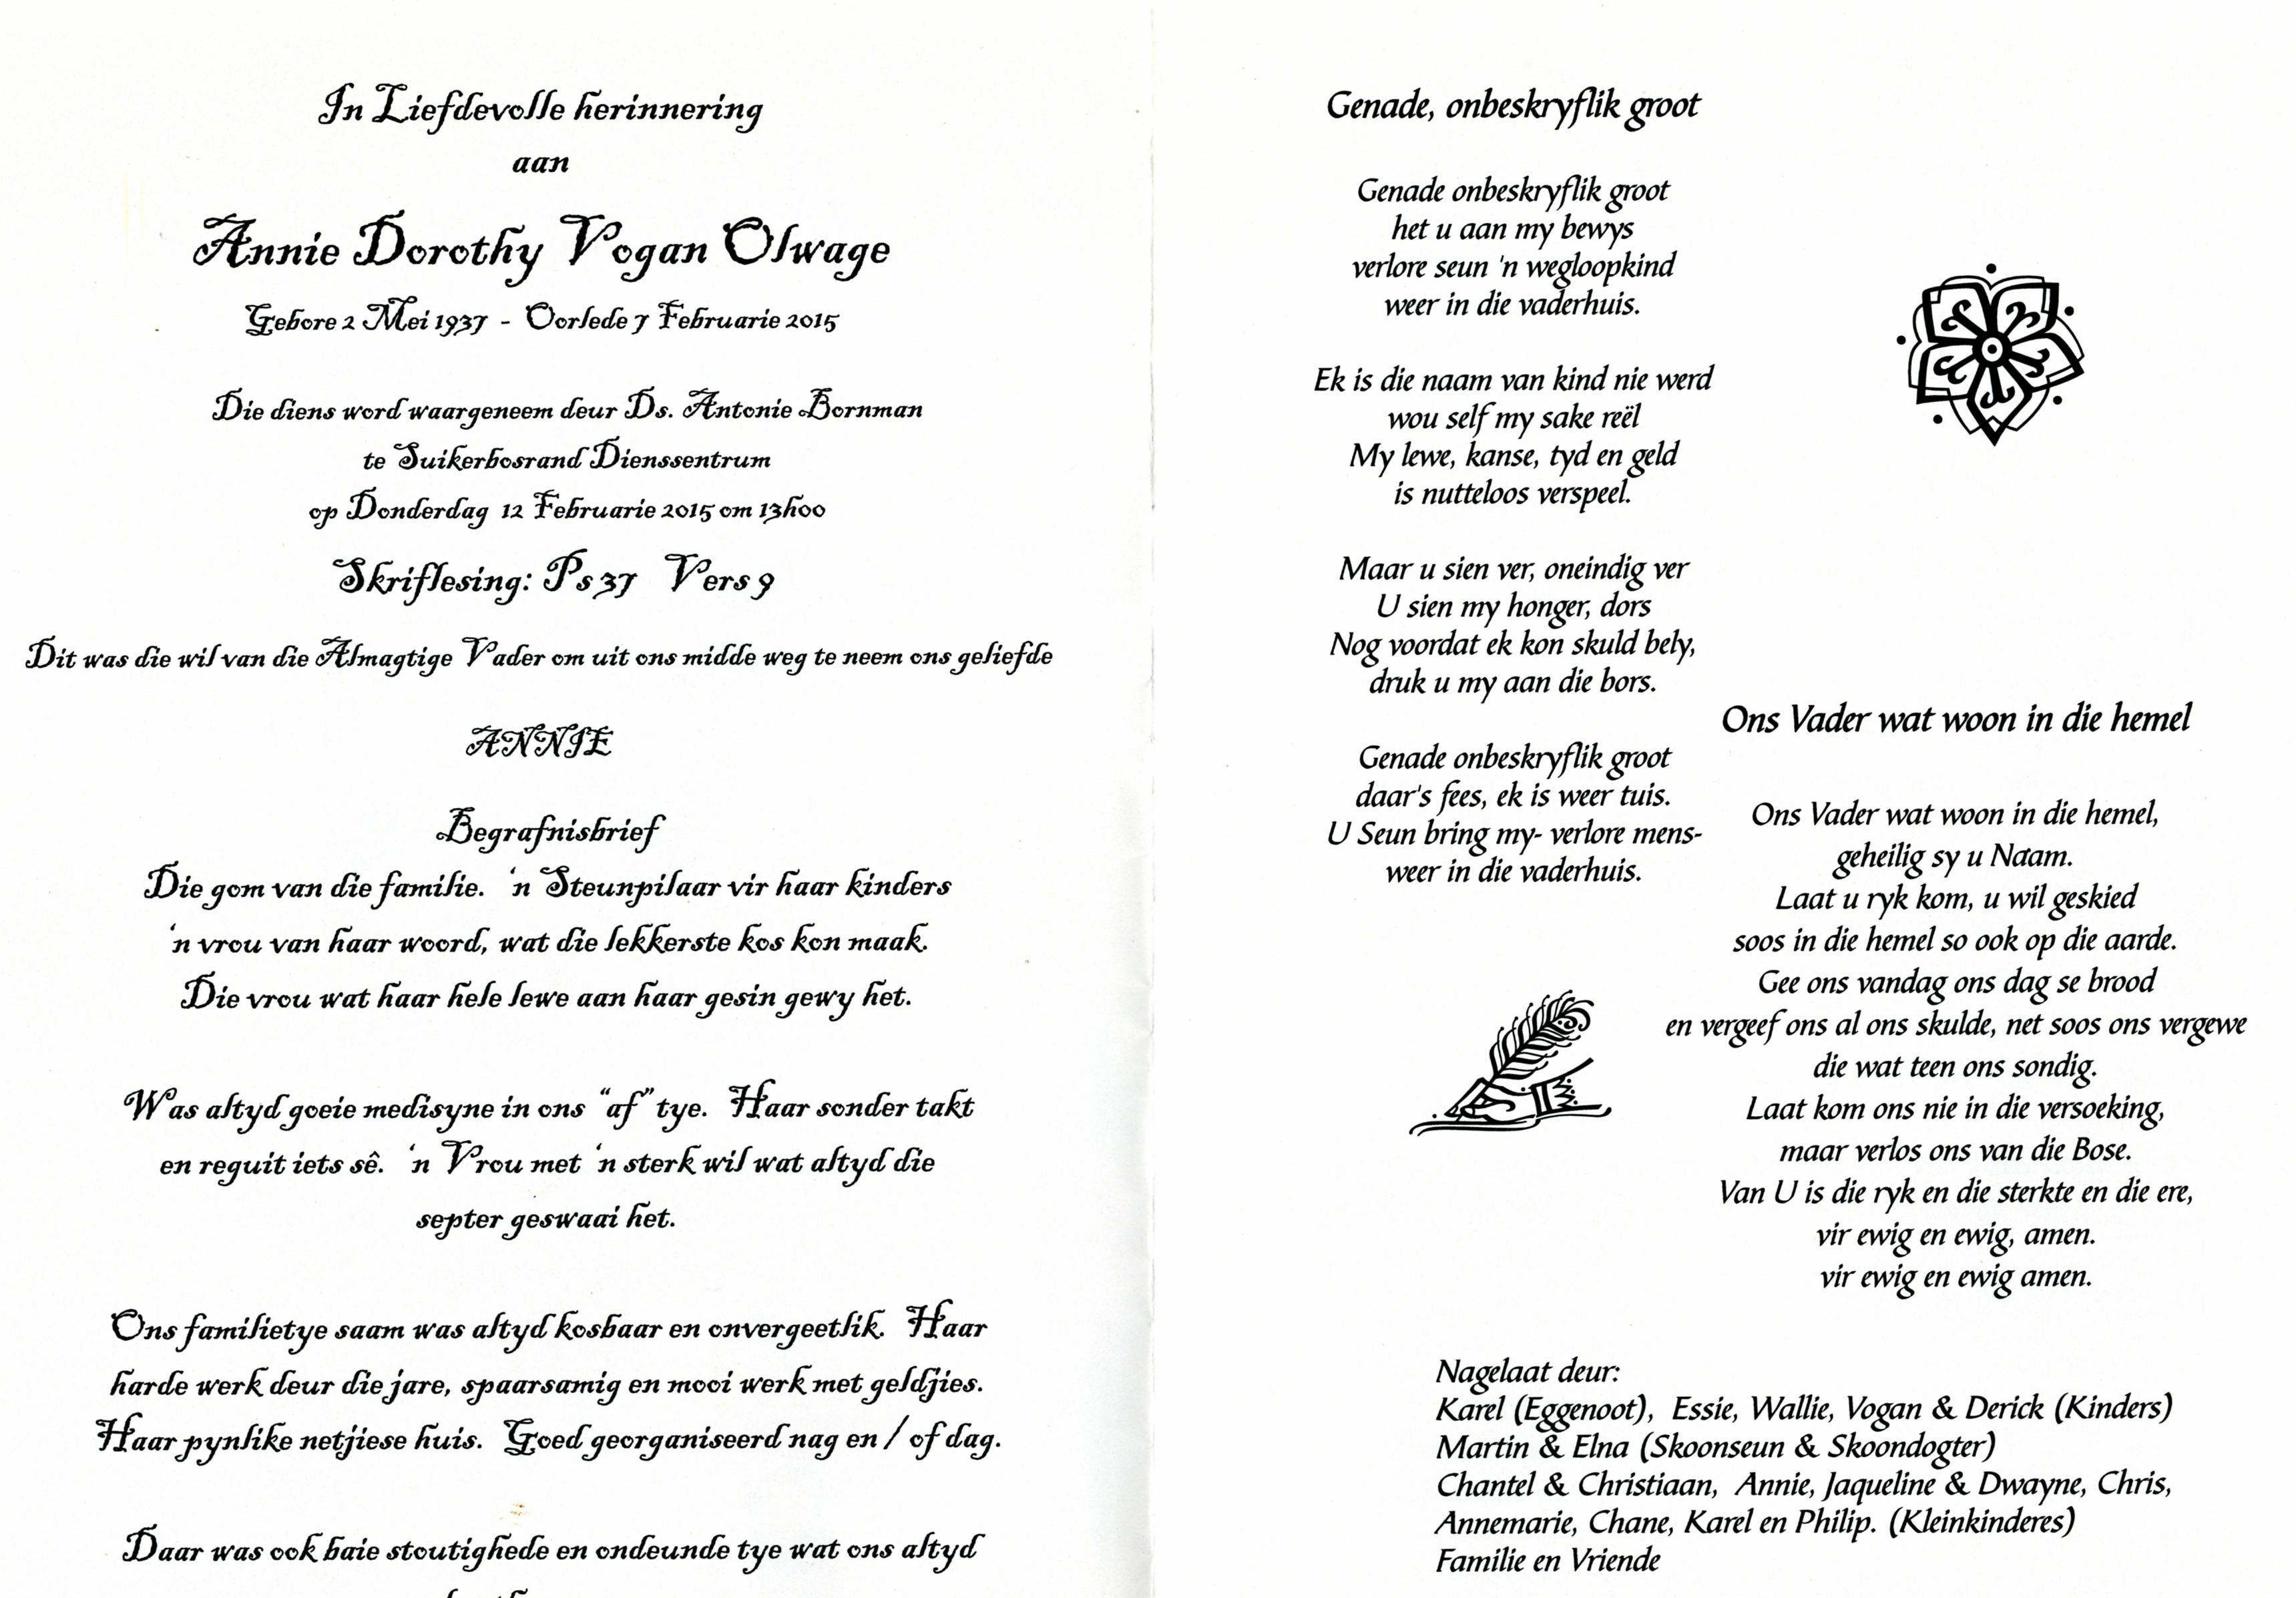 In Liefdevolle herinnering
aan
Annie Dorothy Vogan Olwage
Gebore 2 Mei 1937 - Oorlede 7 Februarie 2015
Die diens word waargeneem deur Ds. Antonie Bornman
te Suikerbosrand Dienssentrum
op Donderdag 12 Februarie 2015 om 13h00
Skriflesing: Ps 37 Vers 9
Dit was die wil van die Almagtige Vader om uit ons midde weg te neem ons geliefde
ANNIE
Begrafnisbrief
Die gom van die familie. 'n Steunpilaar vir haar kinders
'n vrou van haar woord, wat die lekkerste kos kon maak.
Die vrou wat haar hele lewe aan haar gesin gewy het.
Was altyd goeie medisyne in ons "af" tye. Haar sonder takt
en reguit iets sê. 'n Vrou met 'n sterk wil wat altyd die
septer geswaai het.
Ons familietye saam was altyd kosbaar en onvergeetlik. Haar
harde werk deur die jare, spaarsamig en mooi werk met geldjies.
Haar pynlike netjiese huis. Goed georganiseerd nag en / of dag.
Daar was ook baie stoutighede en ondeunde tye wat ons altyd
Genade, onbeskryflik groot
Genade onbeskryflik groot
het u aan my bewys
verlore seun 'n wegloopkind
weer in die vaderhuis.
Ek is die naam van kind nie werd
wou self my sake reël
My lewe, kanse, tyd en geld
is nutteloos verspeel.
Maar u sien ver, oneindig ver
U sien my honger, dors
Nog voordat ek kon skuld bely,
druk u my aan die bors.
Genade onbeskryflik groot
daar's fees, ek is weer tuis.
U Seun bring my- verlore mens-
weer in die vaderhuis.
Ons Vader wat woon in die hemel
Ons Vader wat woon in die hemel,
geheilig sy u Naam.
Laat u ryk kom, u wil geskied
soos in die hemel so ook op die aarde.
Gee ons vandag ons dag se brood
en vergeef ons al ons skulde, net soos ons vergewe
die wat teen ons sondig.
Laat kom ons nie in die versoeking,
maar verlos ons van die Bose.
Van U is die ryk en die sterkte en die ere,
vir ewig en ewig, amen.
vir ewig en ewig amen.
Nagelaat deur:
Karel (Eggenoot), Essie, Wallie, Vogan & Derick (Kinders)
Martin & Elna (Skoonseun & Skoondogter)
Chantel & Christiaan, Annie, Jaqueline & Dwayne, Chris,
Annemarie, Chane, Karel en Philip. (Kleinkinderes)
Familie en Vriende